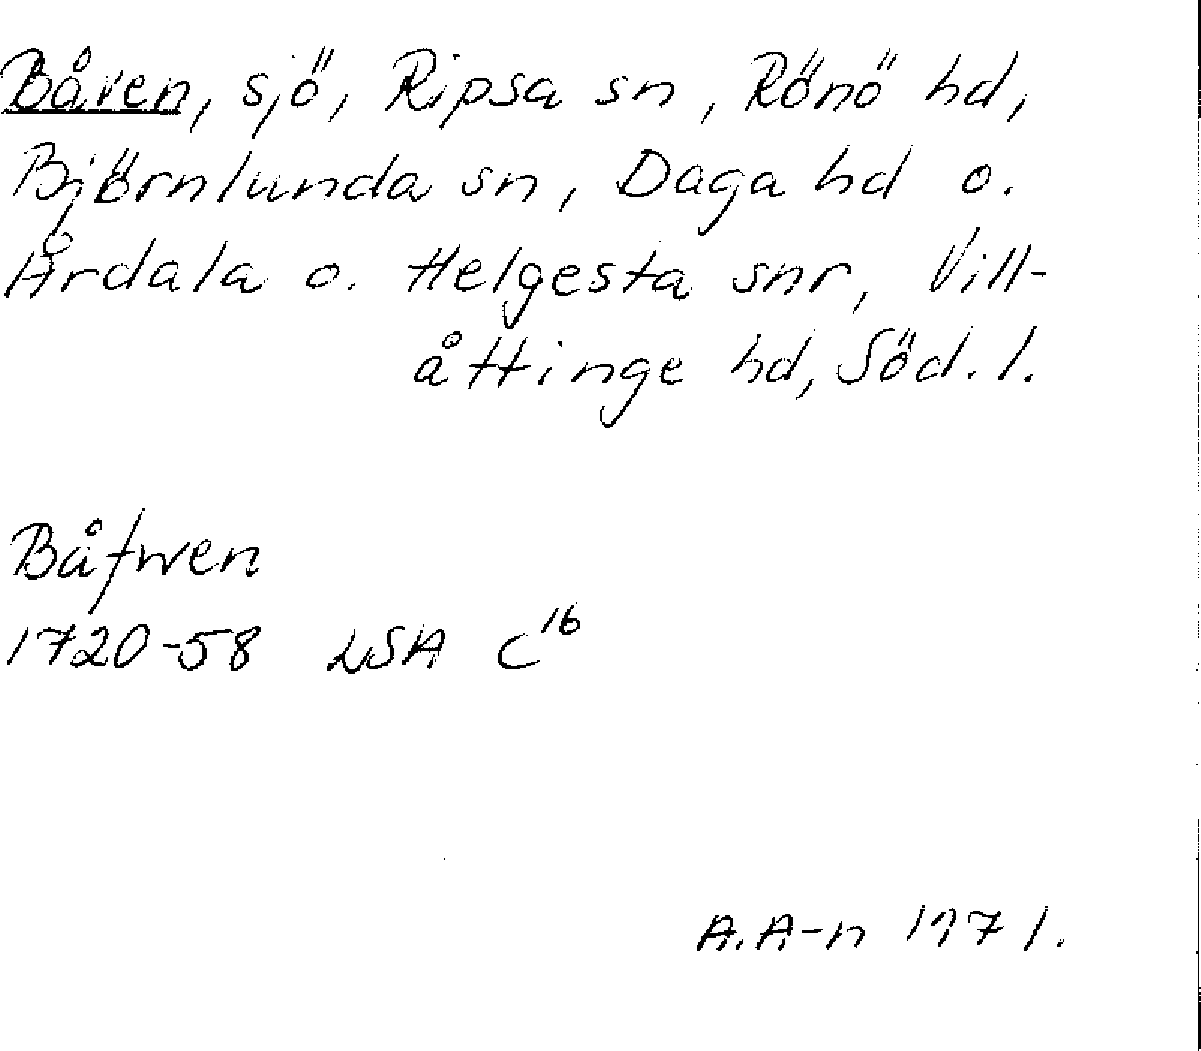 Båven, sjö, Ripsa sn, Rönö hd,
Björnlunda sn, Daga hd o.
Årdala o. Helgesta snr, Vill-
åttinge hd, Söd. l.
Båfwen
1720-58 LSA C16
A.A-n 1971.